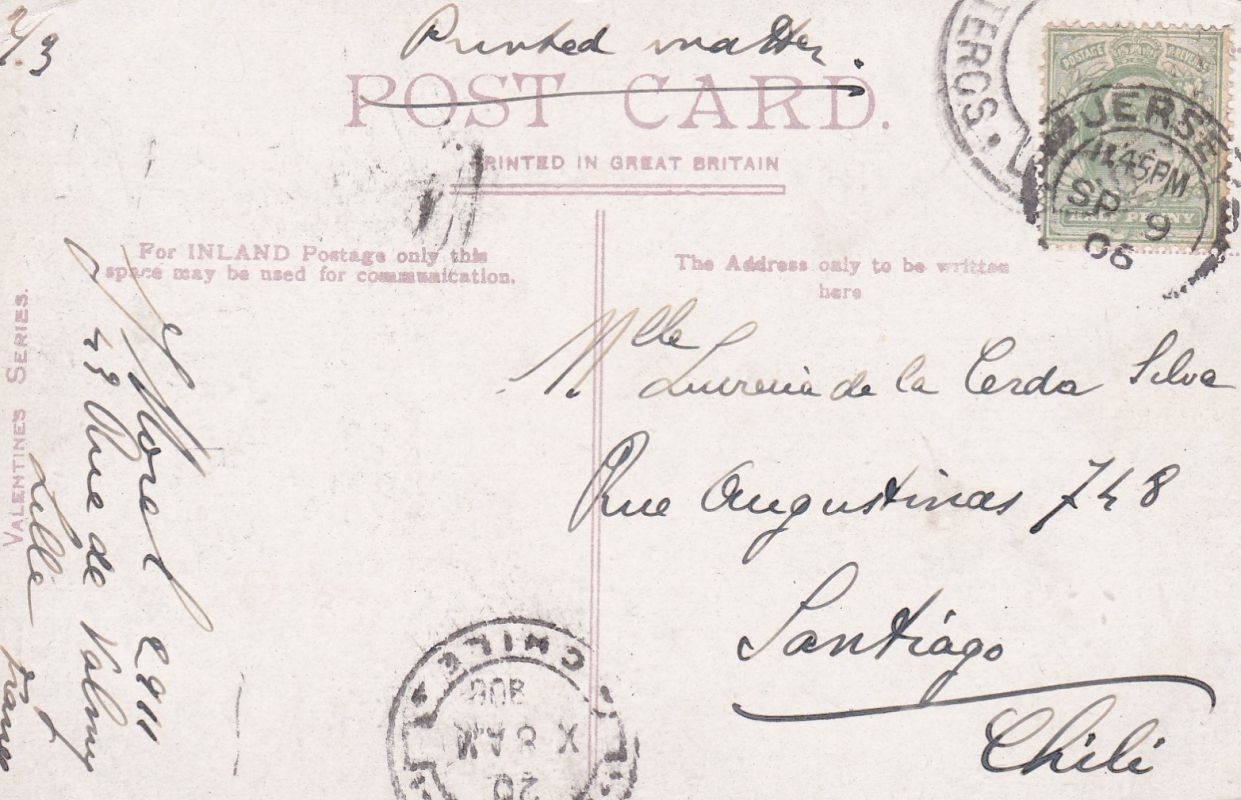 2/3
Printed matter.
POST CARD.
PRINTED IN GREAT BRITAIN
For INLAND Postage only this
space may be used for communication.
The Address only to be written
here
POSTAGE REVENUE
HALF PENNY
JERSEY
11.45PM
SP 9
06
VALENTINE'S SERIES.
Morel 2911
49 Rue de Valmy
Lille
France
Mlle de la Cerda Silva
Rue Augustinas 748
Santiago
Chili
CHILE
X 8 AM
20